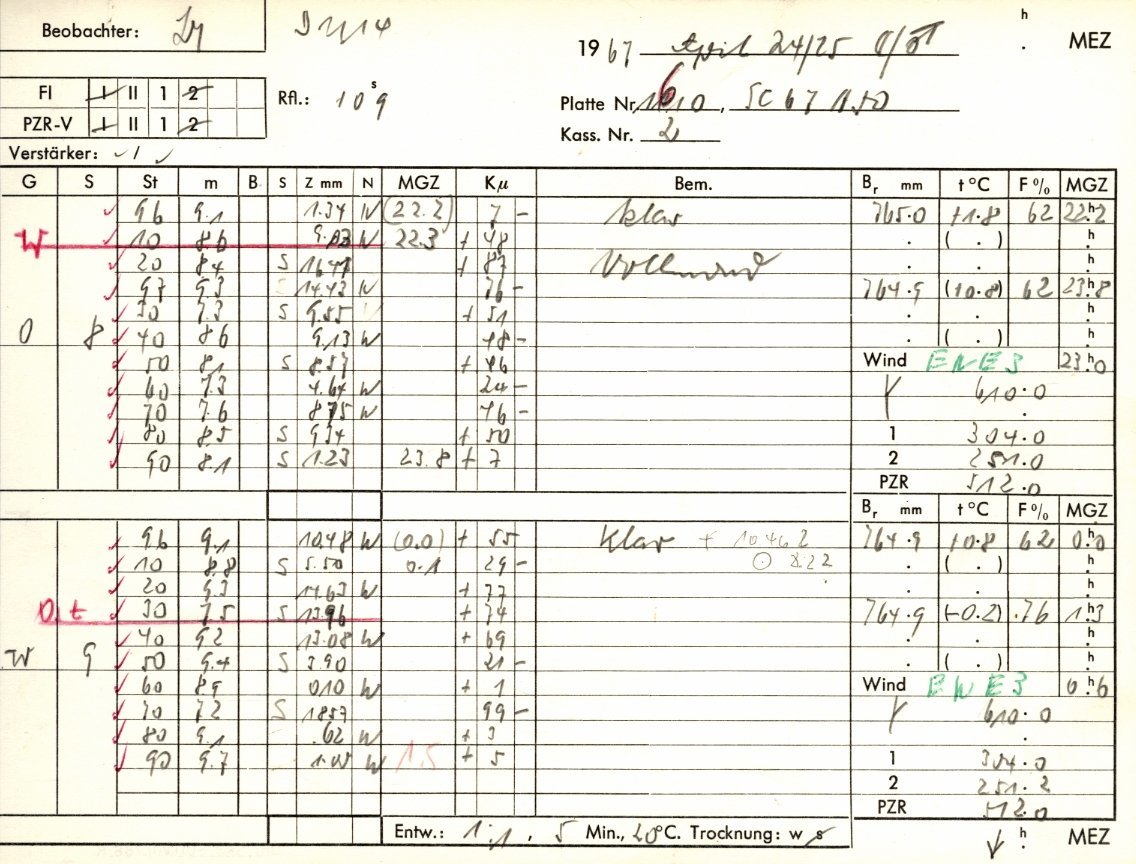 Beobachter:
h
19 67 April 24/25 MEZ
FI I II 1 2
Rfl.: 10 s 9
Platte Nr. , SC 67 1150
PZR-V I II 1 2
Kass. Nr. 2
Verstärker: ✓ 1 ✓
G S St m B S Z mm N MGZ Kμ Bem. Br mm t °C F % MGZ
96 9.1 1.34 W (22.2) 7 - klar 765.0 +1.8 62 22.h2
W 10 8.6 9.13 W 22.3 + 48 . ( . ) h
20 8.4 S 16.41 + 87 Vollmond . . h
97 9.3 14.43 W 76 - 764.9 (+0.8) 62 23.h8
30 7.3 S 9.55 + 51 . . h
O 8 40 8.6 9.13 W 48 - . ( . ) h
50 8.1 S 8.57 + 46 Wind ENE 3 23.h0
60 7.3 4.64 W 24 - 610.0
70 7.6 8.75 W 46 -
80 8.5 S 9.34 + 50 1 304.0
90 8.1 S 1.23 23.8 + 7 2 251.0
PZR 512.0
Br mm t °C F % MGZ
96 9.1 10.48 W (0.0) + 55 klar + 10462 764.9 +0.8 62 0.h0
10 8.8 S 5.50 0.1 29 - ⊙ 822 . ( . ) h
20 9.3 14.63 W + 77 . . h
O.t 30 7.5 S 13.96 + 74 764.9 (-0.2) 76 1.h3
40 9.2 13.08 W + 69 . . h
W 9 50 9.4 S 3.90 21 - . ( . ) h
60 8.9 0.10 W + 1 Wind ENE 3 0.h6
70 7.2 S 18.57 99 - 610.0
80 9.1 .62 W + 3
90 9.7 1.05 W 1.5 + 5 1 304.0
2 251.2
PZR 512.0
Entw.: 1:1, 5 Min., 20°C. Trocknung: w s h MEZ